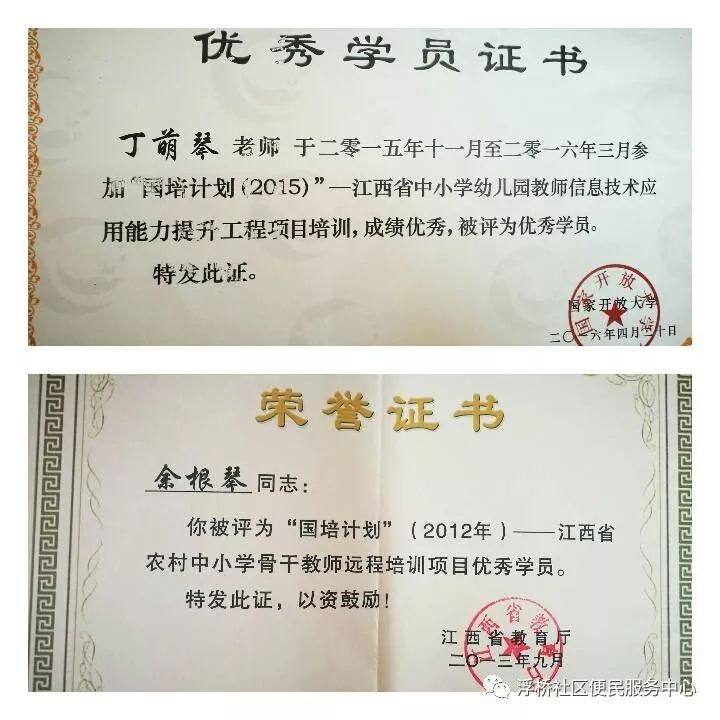 优秀学员证书
丁萌琴 老师 于二零一五年十一月至二零一六年三月参
加“国培计划(2015)”—江西省中小学幼儿园教师信息技术应
用能力提升工程项目培训，成绩优秀，被评为优秀学员。
特发此证。
国家开放大学
国家开放大学
二〇一六年四月二十日
荣誉证书
余根琴 同志：
你被评为“国培计划”（2012年）——江西省
农村中小学骨干教师远程培训项目优秀学员。
特发此证，以资鼓励！
江西省教育厅
江西省教育厅
二〇一三年九月
浮桥社区便民服务中心